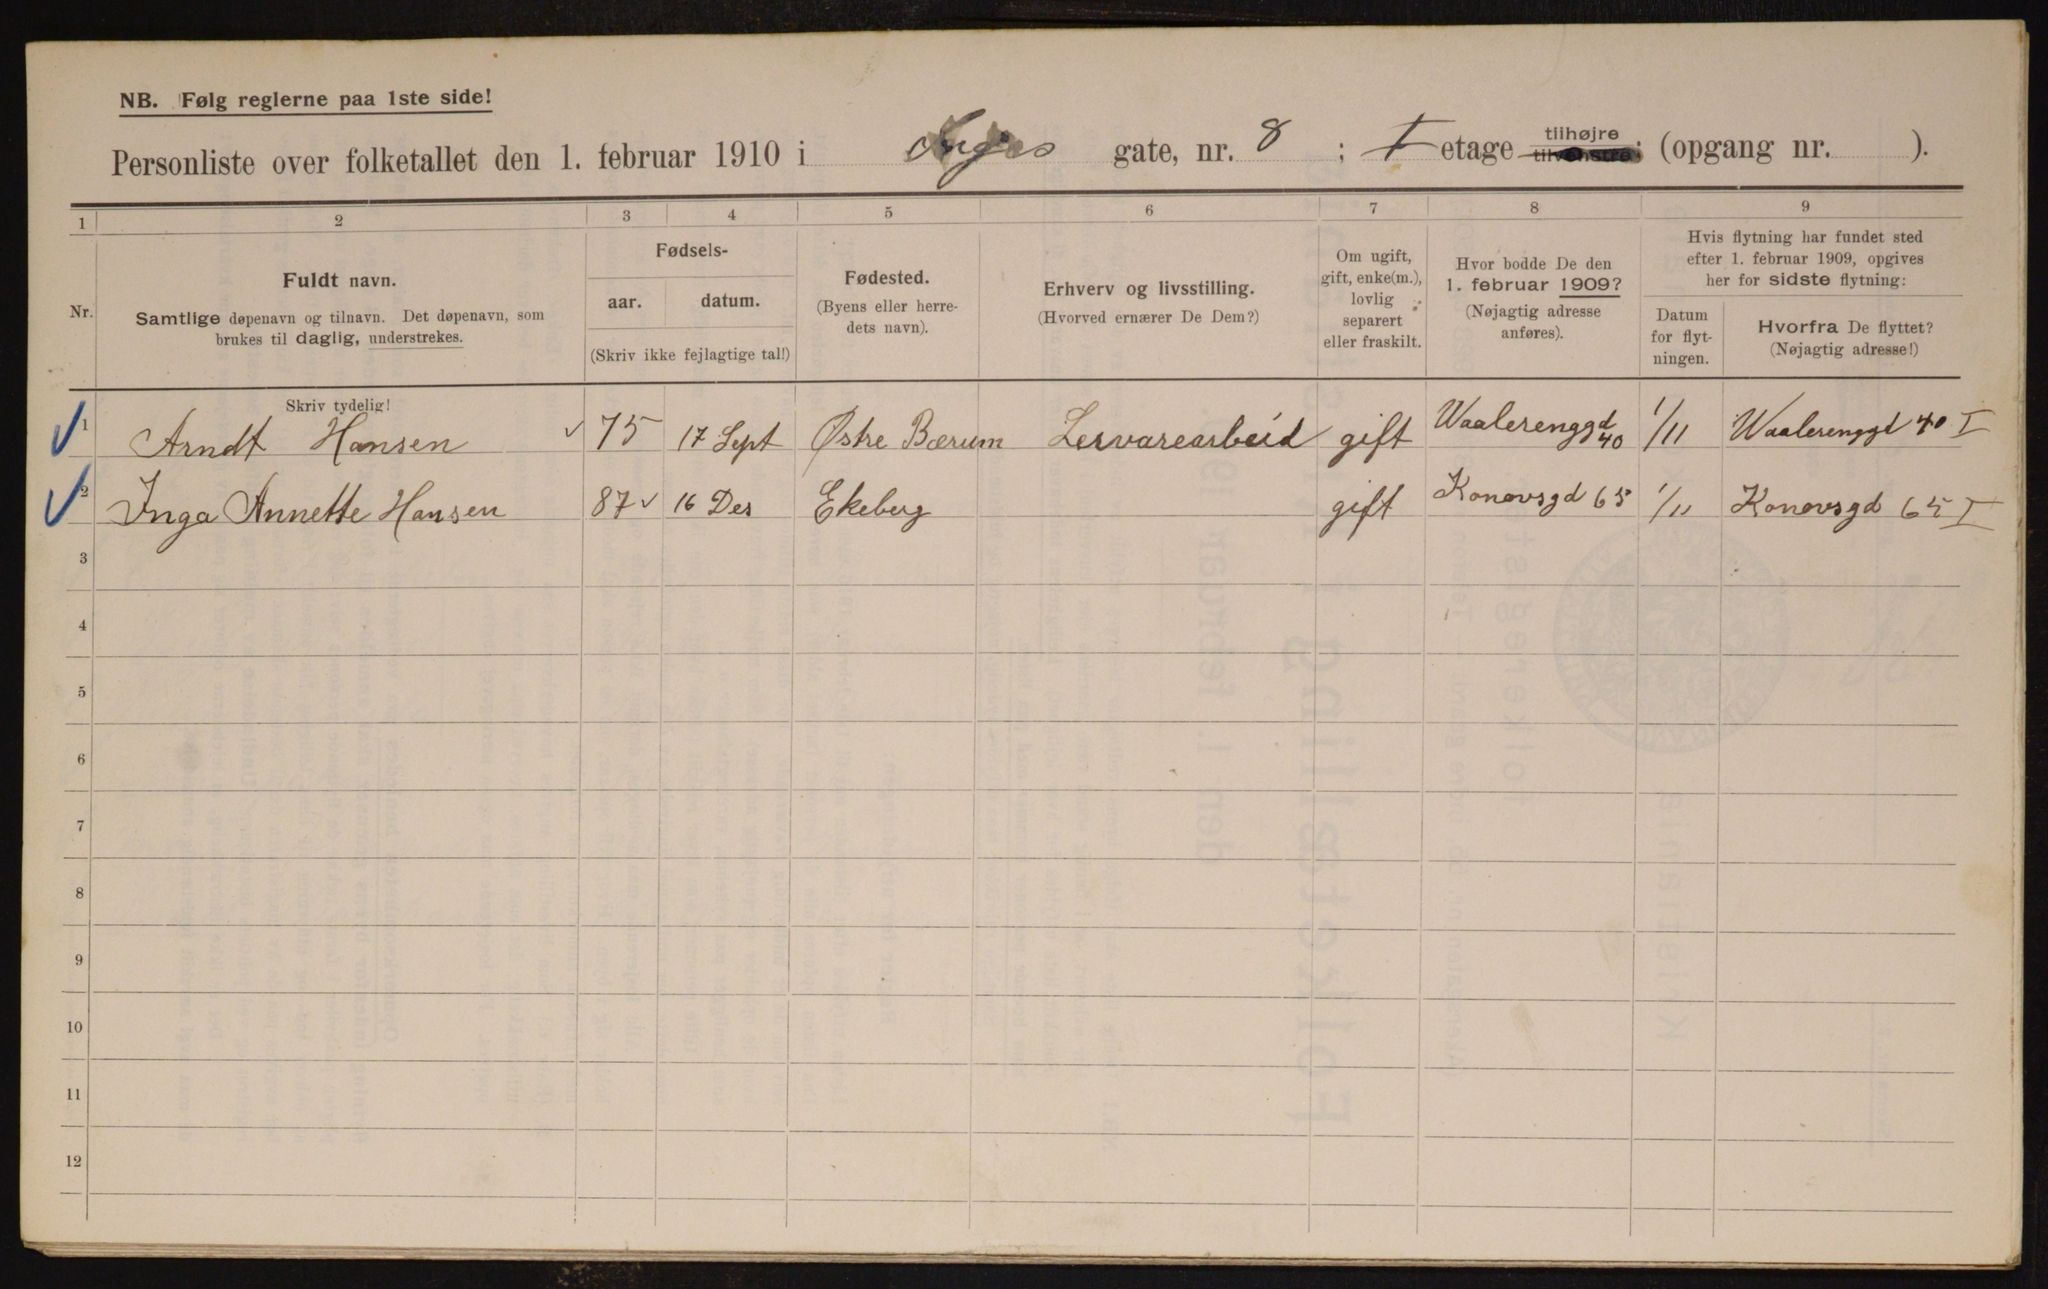 NB. Følg reglerne paa 1ste side!
Personliste over folketallet den 1. februar 1910 i Inges gate, nr. 8 ; I etage tilhøjre tilvenstre; (opgang nr. ).
1 2 3 4 5 6 7 8 9
Nr.
Fuldt navn.
Samtlige døpenavn og tilnavn. Det døpenavn, som
brukes til daglig, understrekes.
Fødsels-
aar. datum.
(Skriv ikke fejlagtige tal!)
Fødested.
(Byens eller herre-
dets navn).
Erhverv og livsstilling.
(Hvorved ernærer De Dem?)
Om ugift,
gift, enke(m.),
lovlig
separert
eller fraskilt.
Hvor bodde De den
1. februar 1909?
(Nøjagtig adresse
anføres).
Hvis flytning har fundet sted
efter 1. februar 1909, opgives
her for sidste flytning:
Datum
for flyt-
ningen.
Hvorfra De flyttet?
(Nøjagtig adresse!)
Skriv tydelig!
1 Arndt Hansen 75 17 Sept Østre Bærum Lervarearbeid gift Waalerenggd 40 1/11 Waalerenggd 40 I
2 Inga Annette Hansen 87 16 Des Ekeberg gift Konovsgd 65 1/11 Konovsgd 65 I
3
4
5
6
7
8
9
10
11
12